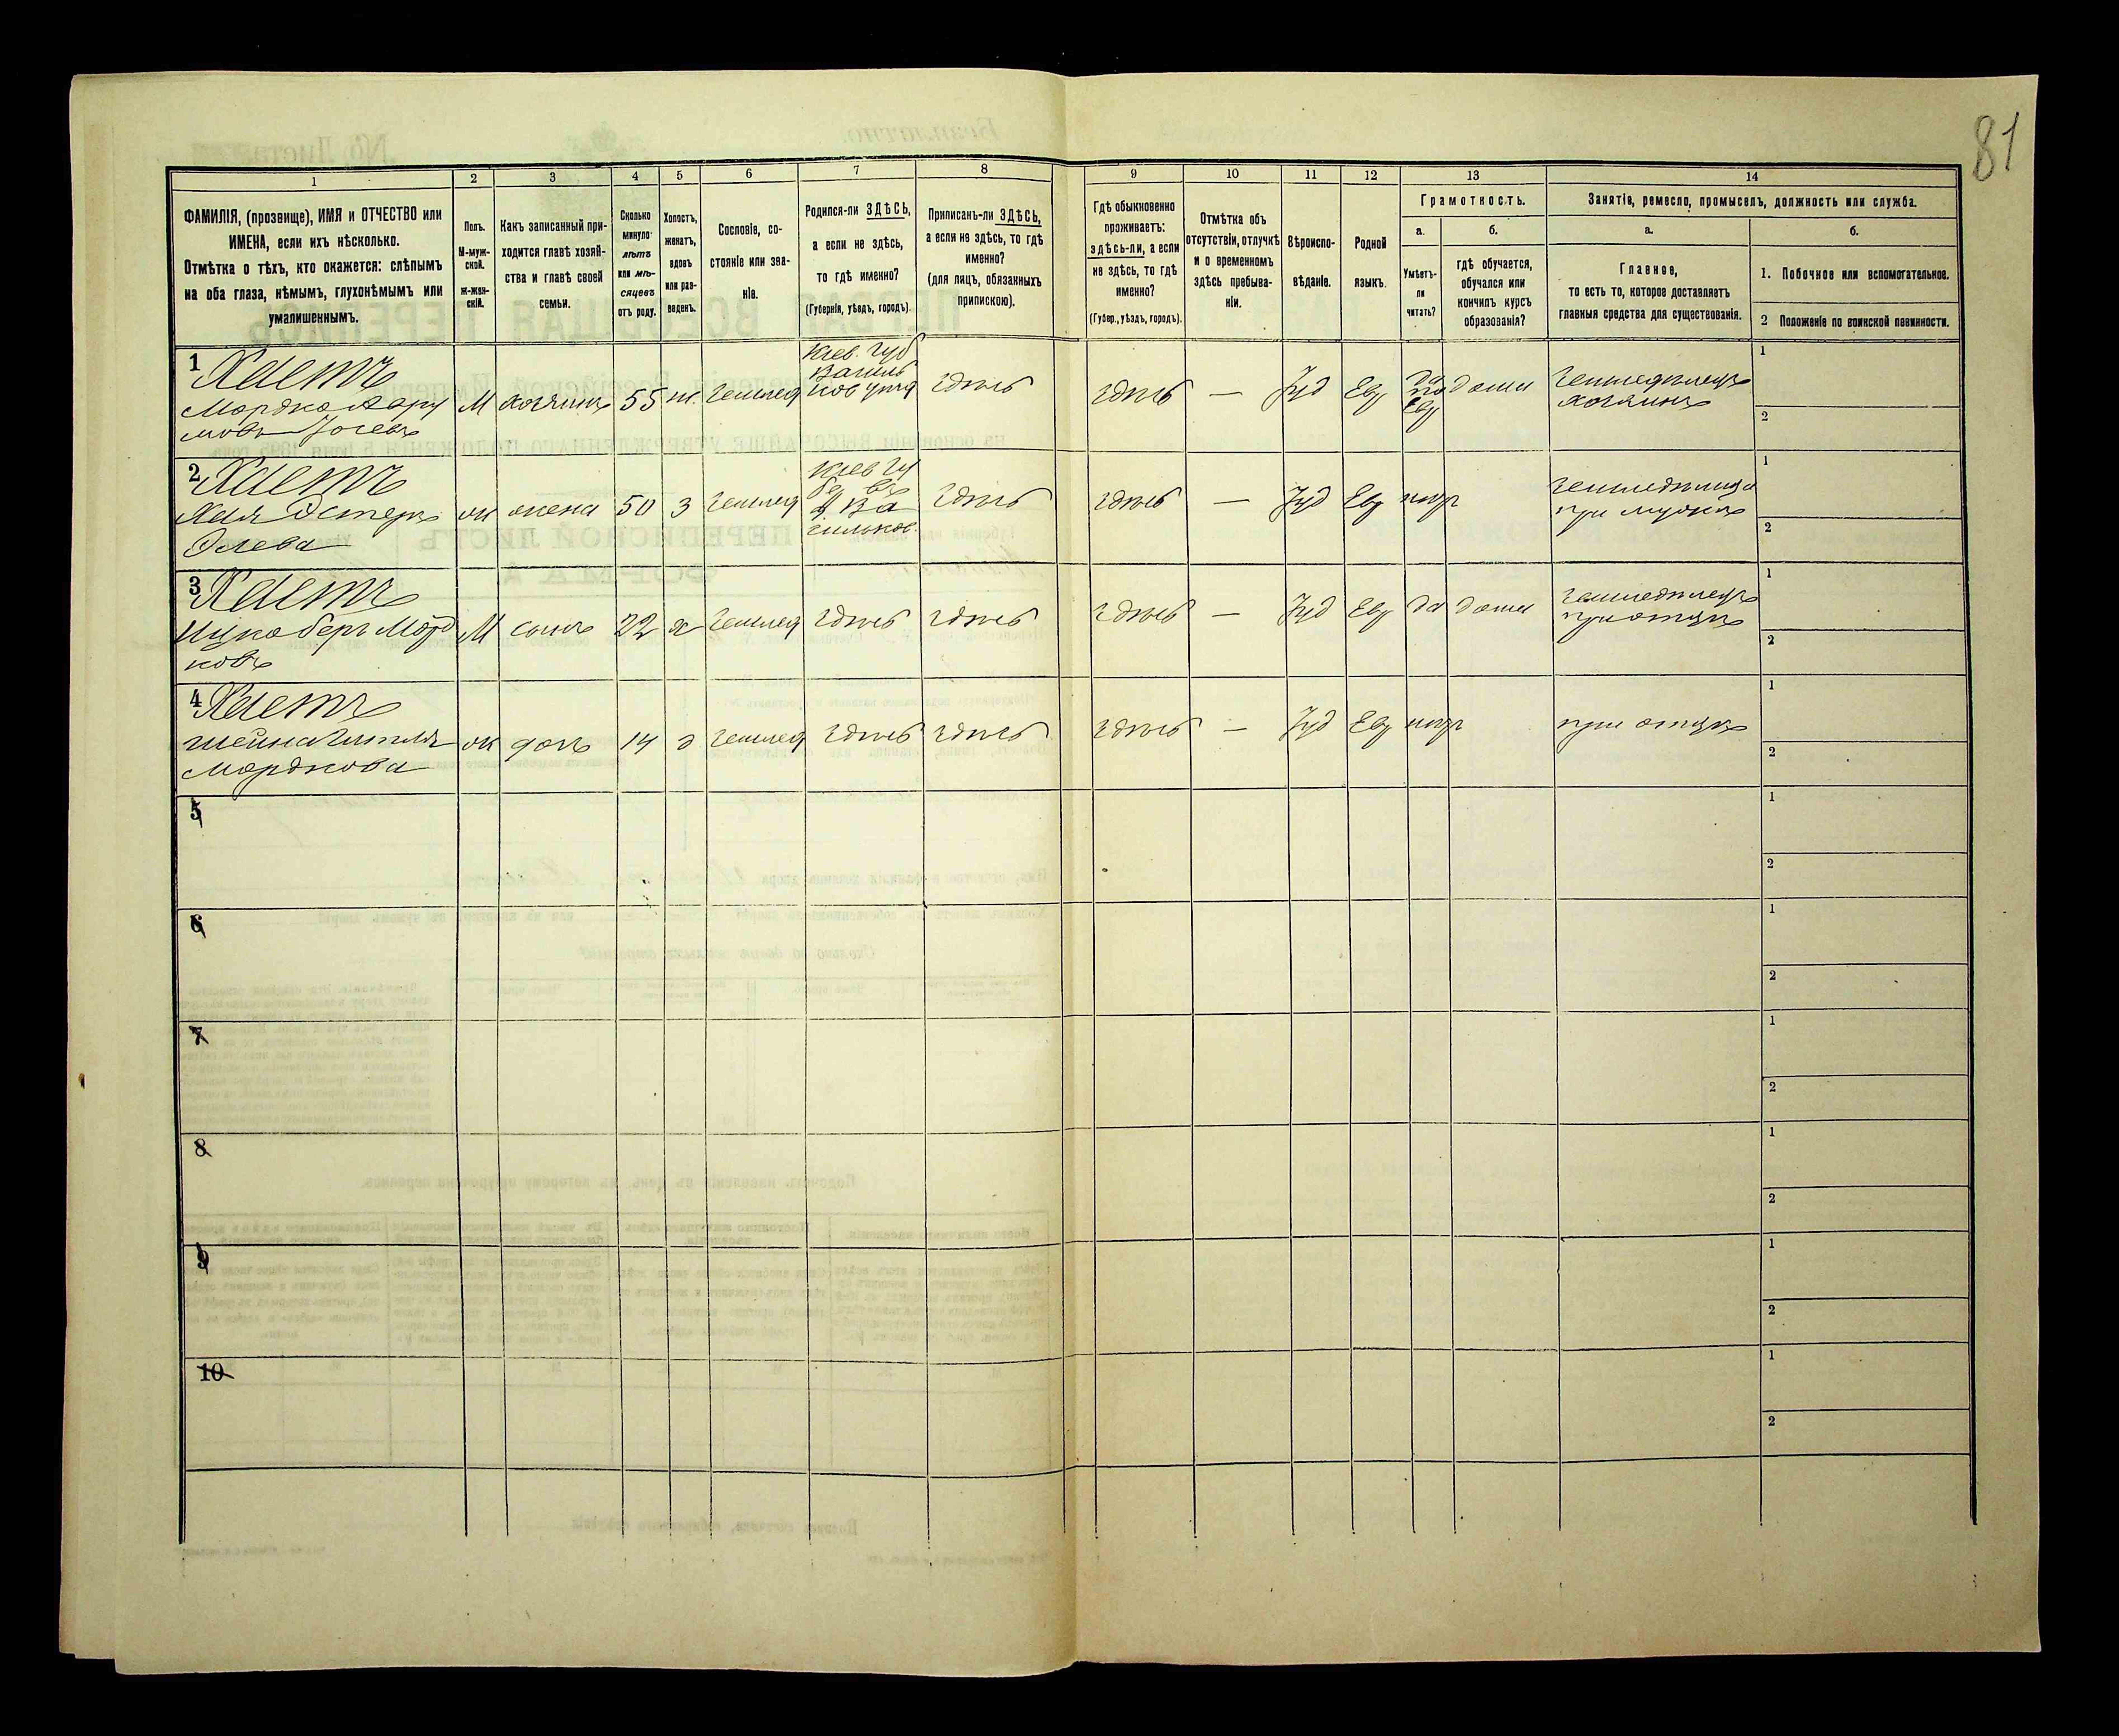 81
1 2 3 4 5 6 7 8 9 10 11 12 13 14
ФАМИЛІЯ, (прозвище), ИМЯ и ОТЧЕСТВО или
ИМЕНА, если ихъ нѣсколько.
Отмѣтка о тѣхъ, кто окажется: слѣпымъ
на оба глаза, нѣмымъ, глухонѣмымъ или
умалишеннымъ.
Полъ.
М-муж-
ской.
ж-жен-
скій.
Какъ записанный при-
ходится главѣ хозяй-
ства и главѣ своей
семьи.
Сколько
минуло
лѣтъ
или мѣ-
сяцевъ
отъ роду.
Холостъ,
женатъ,
вдовъ
или раз-
веденъ.
Сословіе, со-
стояніе или зва-
ніе.
Родился-ли ЗДѢСЬ,
а если не здѣсь,
то гдѣ именно?
(Губернія, уѣздъ, городъ).
Приписанъ-ли ЗДѢСЬ,
а если не здѣсь, то гдѣ
именно?
(для лицъ, обязанныхъ
припискою).
Гдѣ обыкновенно
проживаетъ:
здѣсь-ли, а если
не здѣсь, то гдѣ
именно?
(Губер., уѣздъ, городъ).
Отмѣтка объ
отсутствіи, отлучкѣ
и о временномъ
здѣсь пребыва-
ніи.
Вѣроиспо-
вѣданіе.
Родной
языкъ.
Грамотность.
а.
Умѣетъ-
ли
читать?
б.
гдѣ обучается,
обучался или
кончилъ курсъ
образованія?
Занятіе, ремесло, промыселъ, должность или служба.
а.
Главное,
то есть то, которое доставляетъ
главныя средства для существованія.
б.
1. Побочное или вспомогательное.
2 Положеніе по воинской повинности.
1 Хаетъ
Мордко
М хозяинъ 55 ж. землед
Кіев. губ
Василь
ков уѣзд
здѣсь здѣсь — Іуд Евр
да
по
Евр
дома
земледѣлецъ
хозяинъ
1
2
2 Хаетъ
Хая Эстеръ
ж жена 50 з землед
здѣсь здѣсь — Іуд Евр негр
при мужѣ
1
2
3 Хаетъ
Ицко беръ Морд
ковъ
М сынъ 22 х землед здѣсь здѣсь здѣсь — Іуд Евр да дома
земледѣлецъ
при отцѣ
1
2
4 Хаетъ
Мордкова
ж дочь 14 д землед здѣсь здѣсь здѣсь — Іуд Евр негр при отцѣ
1
2
5
1
2
6
1
2
7
1
2
8
1
2
9
1
2
10
1
2